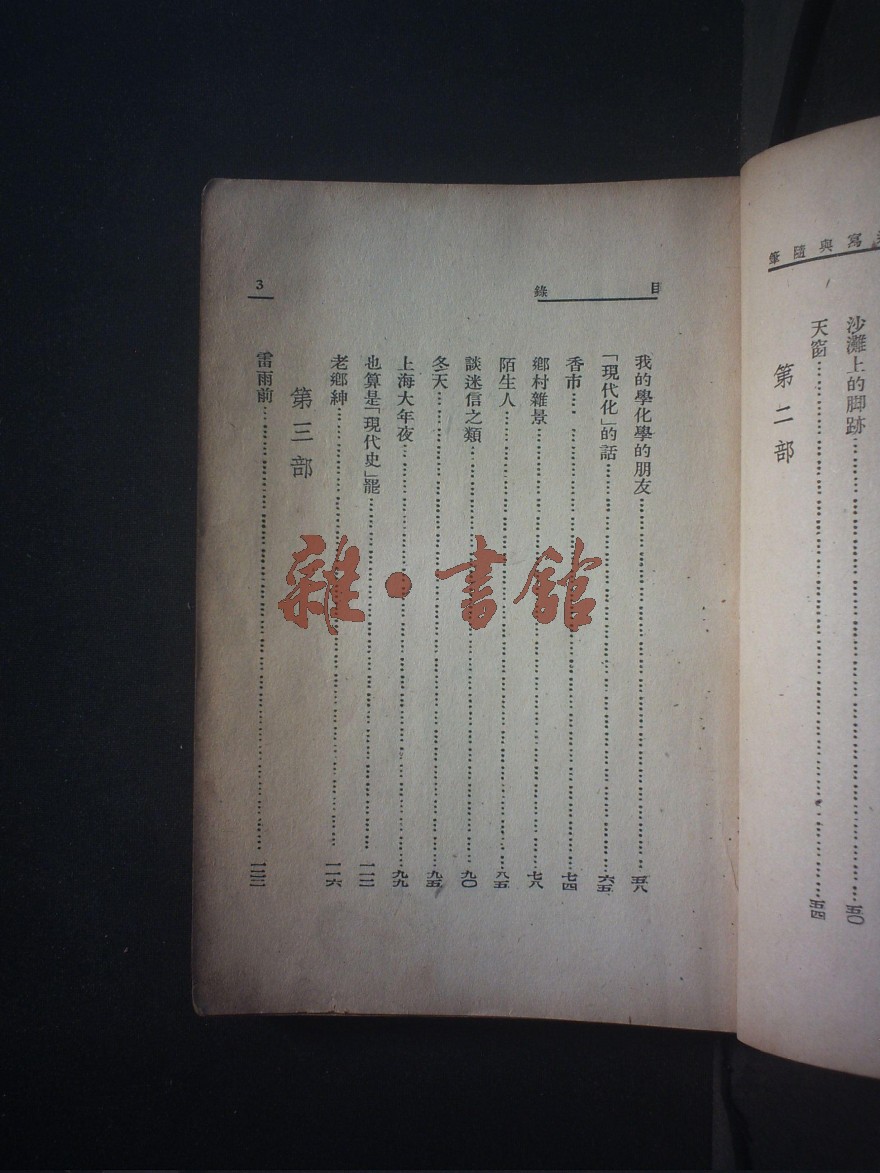 寫與隨筆
沙灘上的脚跡……五〇
天窗……五四
第二部
目錄
我的學化學的朋友……五八
「現代化」的話……六五
香市……七四
鄉村雜景……七八
陌生人……八五
談迷信之類……九〇
冬天……九五
上海大年夜……九九
也算是「現代史」罷……一一二
老鄉紳……一一六
第三部
雷雨前……一二三
3
雜·書館